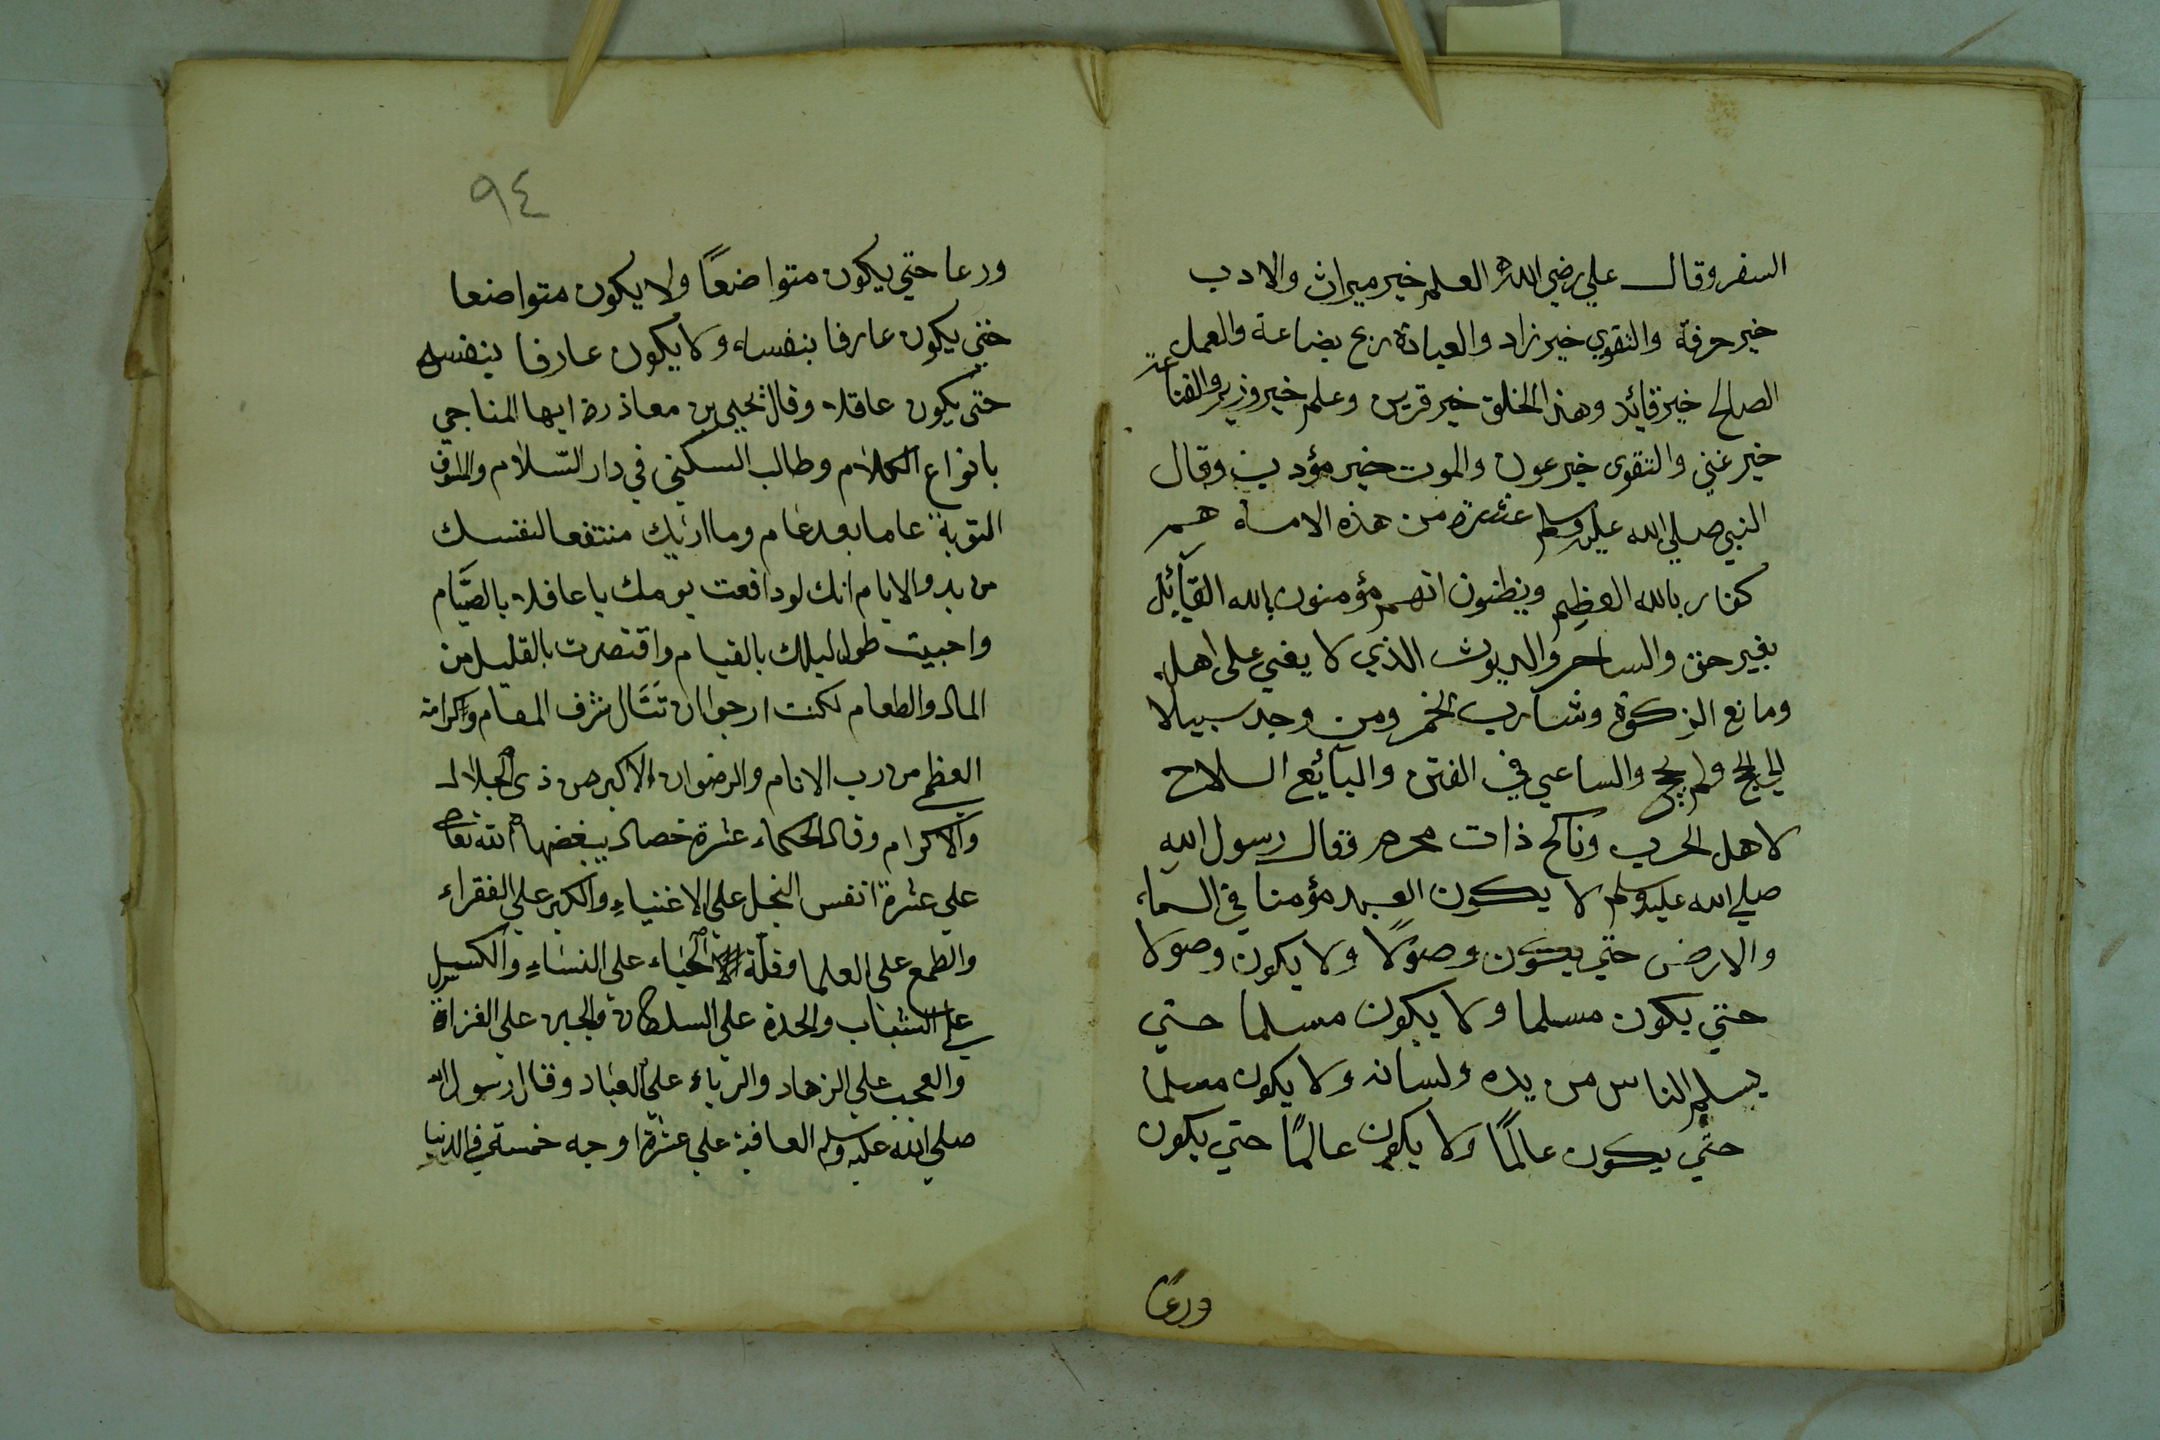 السفر وقال علي رضي الله العلم خير ميراث والادب
خير حرفة والتقوي خير زاد والعبادة ربح بضاعة والعمل
الصالح خير قائد وهذ الخلق خير قرين وعلم خير وزير والقناعة
خير غني والتقوى خير عون والموت خير مؤدب وقال
النبي صلي الله عليه وسلم عشرة من هذه الامة هم
كفار بالله العظيم ويظنون انهم مؤمنون بالله القآئل
بغير حق والساحر والديوث الذي لا يغي على اهله
ومانع الزكوة وشارب الخمر ومن وجد سبيلا
الي الحج ولم يحج والساعي في الفتن والبآئع السلاح
لاهل الحرب وناكح ذات محرم فقال رسول الله
صلي الله عليه وسلم لا يكون العبد مؤمنا في السماء
والارض حتي يكون وصولًا ولا يكون وصولا
حتي يكون مسلما ولا يكون مسلما حتي
يسلم الناس من يده ولسانه ولا يكون مسلما
حتي يكون عالمًا ولا يكون عالمًا حتي يكون
ورعًا
٩٤
ورعا حتي يكون متواضعًا ولا يكون متواضعا
حتي يكون عارفا بنفسه ولا يكون عارفا بنفسه
حتى يكون عاقلا وقال يحيي بن معاذ رح ايها المناجي
بانواع الكلام وطالب السكني في دار السّلام والمسوف
التوبة عاما بعد عام وما اريك منتفعا لنفسك
من بد والايام انك لو دافعت يومك يا عاقلا بالصّيام
واحييت طول ليلك بالقيام واقتصرت بالقليل من
المال والطعام لكنت ارجوا ان تَنَال شرف المقام والكرامة
العظيم من رب الانام والرضوان الاكبر من ذي الجلال
والاكرام وقال الحكماء عشرة خصال يبغضها الله تعالى
علي عشرة انفس البخل علي الاغنياءِ والكبر علي الفقراء
والطمع على العلما وقلّة الحياء على النساءِ والكسل
علي الشباب والحدة علي السلطان والجبن علي الغزاة
والعجب علي الزهاد والرياء علي العباد وقال رسول الله
صلي الله عليه وسلم العافية علي عشرة اوجه خمسة في الدنيا